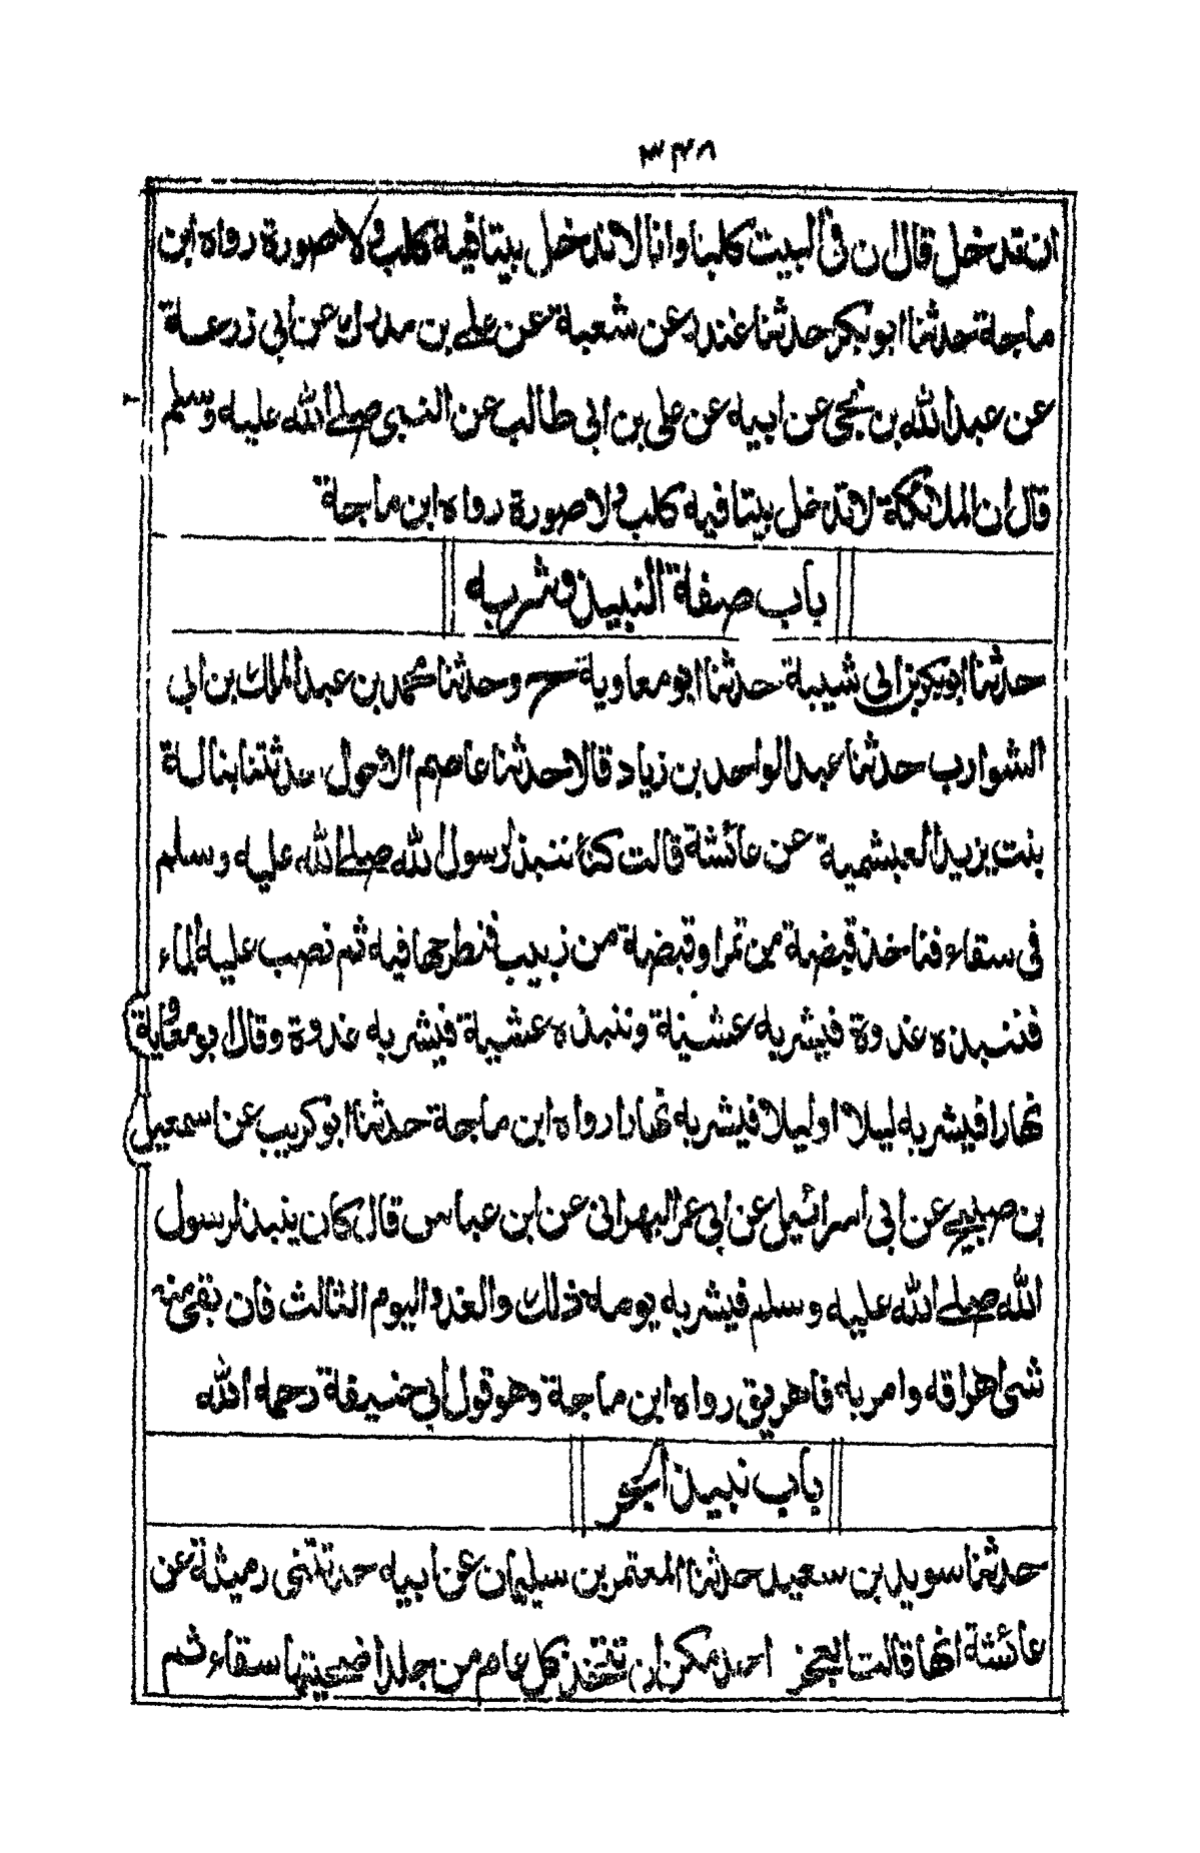 ٣٤٨
ان ندخل قال ان فى البيت كلبا وانا لا ندخل بيتا فيه كلب ولا صورة رواه ابن
ماجة حدثنا ابو بكر حدثنا غندر عن شعبة عن على بن مدرك عن ابى زرعة
عن عبد الله بن نجى عن ابيه عن على بن ابى طالب عن النبى صلى الله عليه وسلم
قال ان الملائكة لا تدخل بيتا فيه كلب ولا صورة رواه ابن ماجة
باب صفة النبيذ وشربه
حدثنا ابو بكر بن ابى شيبة حدثنا ابو معاوية ح وحدثنا محمد بن عبد الملك بن ابى
الشوارب حدثنا عبد الواحد بن زياد قالا حدثنا عاصم الاحول حدثتنا بنالة
بنت يزيد العبشمية عن عائشة قالت كنا ننبذ لرسول الله صلى الله عليه وسلم
فى سقاء فناخذ قبضة من تمر او قبضة من زبيب فنطرحها فيه ثم نصب عليه الماء
فننبذه غدوة فيشربه عشية وننبذه عشية فيشربه غدوة وقال ابو معاوية
نهارا فيشربه ليلا او ليلا فيشربه نهارا رواه ابن ماجة حدثنا ابو كريب عن اسمعيل
بن صبيح عن ابى اسرائيل عن ابى عمر البهرانى عن ابن عباس قال كان ينبذ لرسول
الله صلى الله عليه وسلم فيشربه يومه ذلك والغد واليوم الثالث فان بقى منه
شئ اهراقه وامر به فاهريق رواه ابن ماجة وهو قول ابى حنيفة رحمه الله
باب نبيذ الجر
حدثنا سويد بن سعيد حدثنا المعتمر بن سليمان عن ابيه حدثتنى رميثة عن
عائشة انها قالت اتعجز احدىكن ان تتخذ كل عام من جلد اضحيتها سقاء ثم